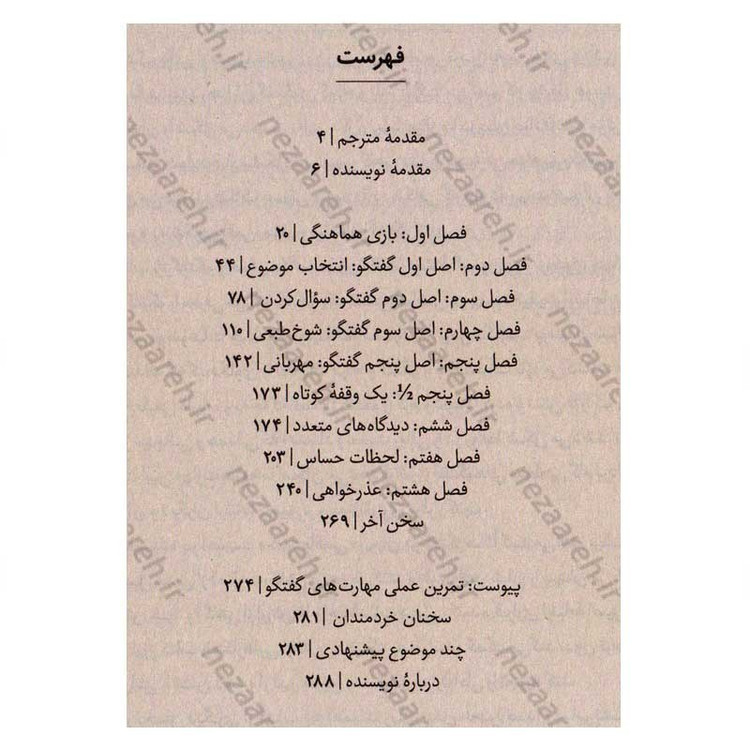 فهرست
مقدمهٔ مترجم | ۴
مقدمهٔ نویسنده | ۶
فصل اول: بازی هماهنگی | ۲۰
فصل دوم: اصل اول گفتگو: انتخاب موضوع | ۴۴
فصل سوم: اصل دوم گفتگو: سؤال‌کردن | ۷۸
فصل چهارم: اصل سوم گفتگو: شوخ‌طبعی | ۱۱۰
فصل پنجم: اصل پنجم گفتگو: مهربانی | ۱۴۲
فصل پنجم ½: یک وقفهٔ کوتاه | ۱۷۳
فصل ششم: دیدگاه‌های متعدد | ۱۷۴
فصل هفتم: لحظات حساس | ۲۰۳
فصل هشتم: عذرخواهی | ۲۴۰
سخن آخر | ۲۶۹
پیوست: تمرین عملی مهارت‌های گفتگو | ۲۷۴
سخنان خردمندان | ۲۸۱
چند موضوع پیشنهادی | ۲۸۳
دربارهٔ نویسنده | ۲۸۸
nezaareh.ir